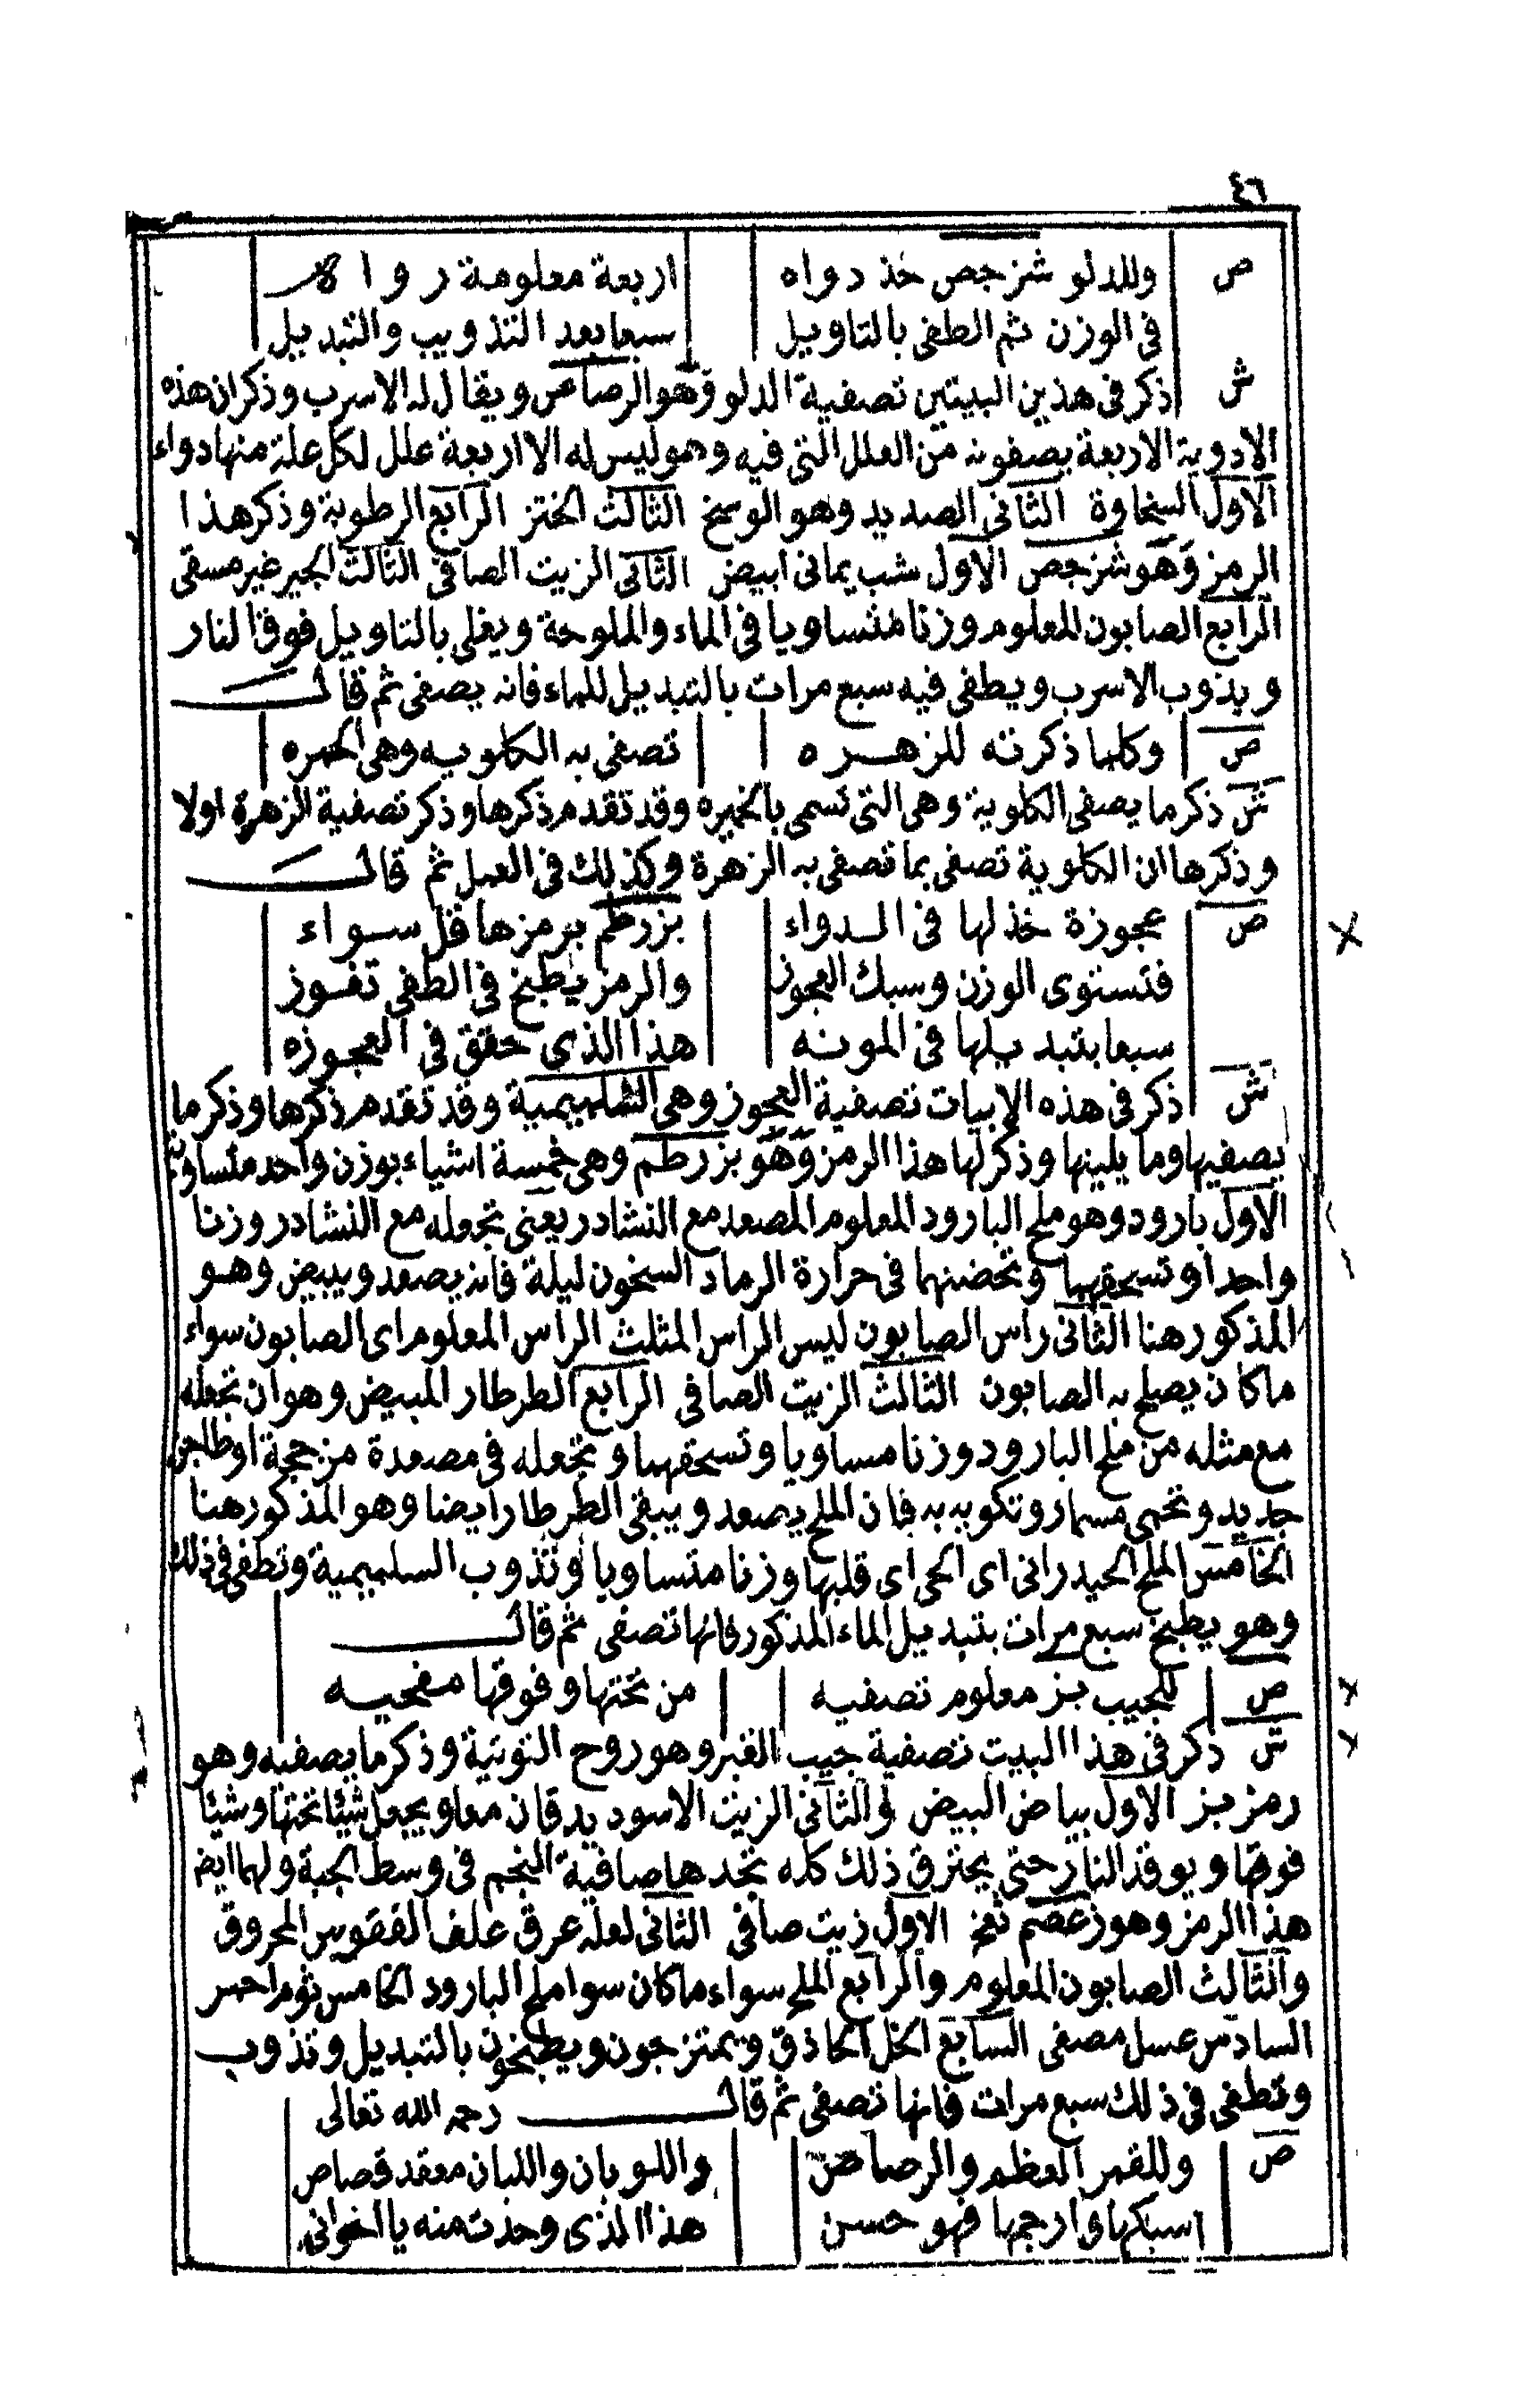 ٤٦
ص وللدلو شزجص خذ دواه اربعة معلومة ر و ا
فى الوزن ثم الطفى بالتاويل سبعا بعد التذويب والتبديل
ش ذكر فى هذين البيتين تصفية الدلو وهو الرصاص ويقال له الاسرب وذكر ان هذه
الادوية الاربعة يصفونه من العلل التى فيه وهو ليس له الا اربعة علل لكل علة منها دواء
الاول السخاوة الثانى الصديد وهو الوسخ الثالث الخنز الرابع الرطوبة وذكر هذا
الرمز وهو شزجص الاول شب يمانى ابيض الثانى الزيت الصافى الثالث الجير غير مسقى
الرابع الصابون المعلوم وزنا متساويا فى الماء والملوحة ويغلى بالتاويل فوق النار
ويذوب الاسرب ويطفى فيه سبع مرات بالتبديل للماء فانه يصفى ثم قال
ص وكلما ذكرته للزهره تصفى به الكلويه وهى الخميره
ش ذكر ما يصفى الكلوية وهى التى تسمى بالخميره وقد تقدم ذكرها وذكر تصفية الزهرة اولا
وذكرها ان الكلوية تصفى بما تصفى به الزهرة وكذلك فى العمل ثم قال
ص عجوزة خذ لها فى الدواء بزرطم برمزها قل سواء
فتستوى الوزن وسبك العجوز والرمز يطبخ فى الطفى تفوز
سبعا بتبديلها فى المونه هذا الذى حقق فى العجوزه
ش ذكر فى هذه الابيات تصفية العجوز وهى السليميية وقد تقدم ذكرها وذكر ما
يصفيها وما يلينها وذكر لها هذا الرمز وهو بزرطم وهى خمسة اشياء بوزن واحد متساويا
الاول بارود وهو ملح البارود المعلوم المصعد مع النشادر يعنى تجعله مع النشادر وزنا
واحدا وتسحقهما وتحضنهما فى حرارة الرماد السخون ليلة فانه يصعد ويبيض وهو
المذكور هنا الثانى راس الصابون ليس الراس المثلث الراس المعلوم اى الصابون سواء
ما كان يصلح به الصابون الثالث الزيت الصافى الرابع الطرطار المبيض وهو ان تجعله
مع مثله من ملح البارود وزنا مساويا وتسحقهما وتجعله فى مصعدة من حجة او طاجن
جديد وتحمى مسمار وتكويه به فان الملح يصعد ويبقى الطرطار ابيضا وهو المذكور هنا
الخامس الملح الحيدرانى اى الحى اى قلبها وزنا متساويا وتذوب السليميية وتطفى فى ذلك
وهو يطبخ سبع مرات بتبديل الماء المذكور فانها تصفى ثم قال
ص للجيب بز معلوم تصفيه من تحتها وفوقها مضحيه
ش ذكر فى هذا البيت تصفية جيب القمر وهو روح التوتية وذكر ما يصفيه وهو
رمز بز الاول بياض البيض والثانى الزيت الاسود يدقان معا ويجعل شيئا تحتها وشيئا
فوقها ويوقد النار حتى يحترق ذلك كله تجدها صافية النجم فى وسط الجبة ولها ايض
هذا الرمز وهو زعصم ثعخ الاول زيت صافى الثانى لعله عرق علف الفقوس المحروق
والثالث الصابون المعلوم والرابع الملح سواء ما كان سوا ملح البارود الخامس ثوم احمر
السادس عسل مصفى السابع الخل الحاذق ويمتزجون ويطبخون بالتبديل وتذوب
وتطفى فى ذلك سبع مرات فانها تصفى ثم قال رحمه الله تعالى
ص وللقمر العظم والرصاص واللوبان واللبان معقد قصاص
اسبكها وارجمها فهو حسن هذا الذى وجدت منه يا اخوانى